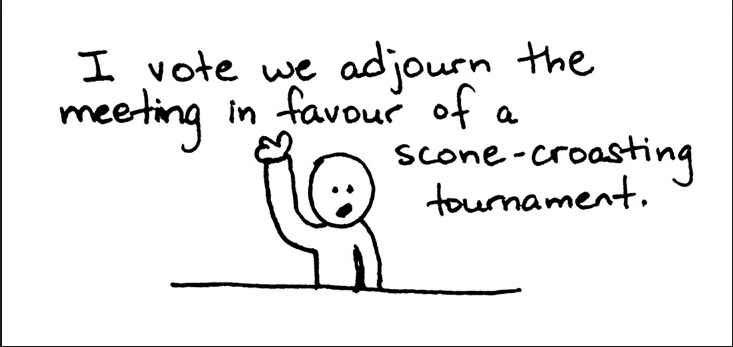 I vote we adjourn the
meeting in favour of a
scone-croasting
tournament.